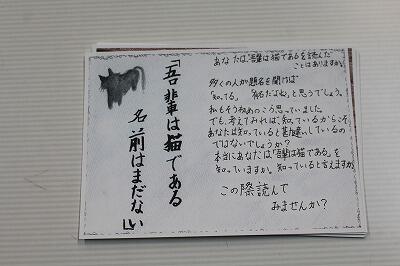 「吾輩は猫である
名前はまだない」
あなたは"吾輩は猫である"を読んだ
ことはありますか。
多くの人が題名を聞けば
「知ってる。」「有名だよね」と思うでしょう。
私もそうゆうふうに思っていました。
でも、考えてみれば、知っているからこそ、
あなたは知っていると勘違いしているの
ではないでしょうか?
本当にあなたは「吾輩は猫である」を
知っていますか。知っていると言えますか。
この際読んで
みませんか?